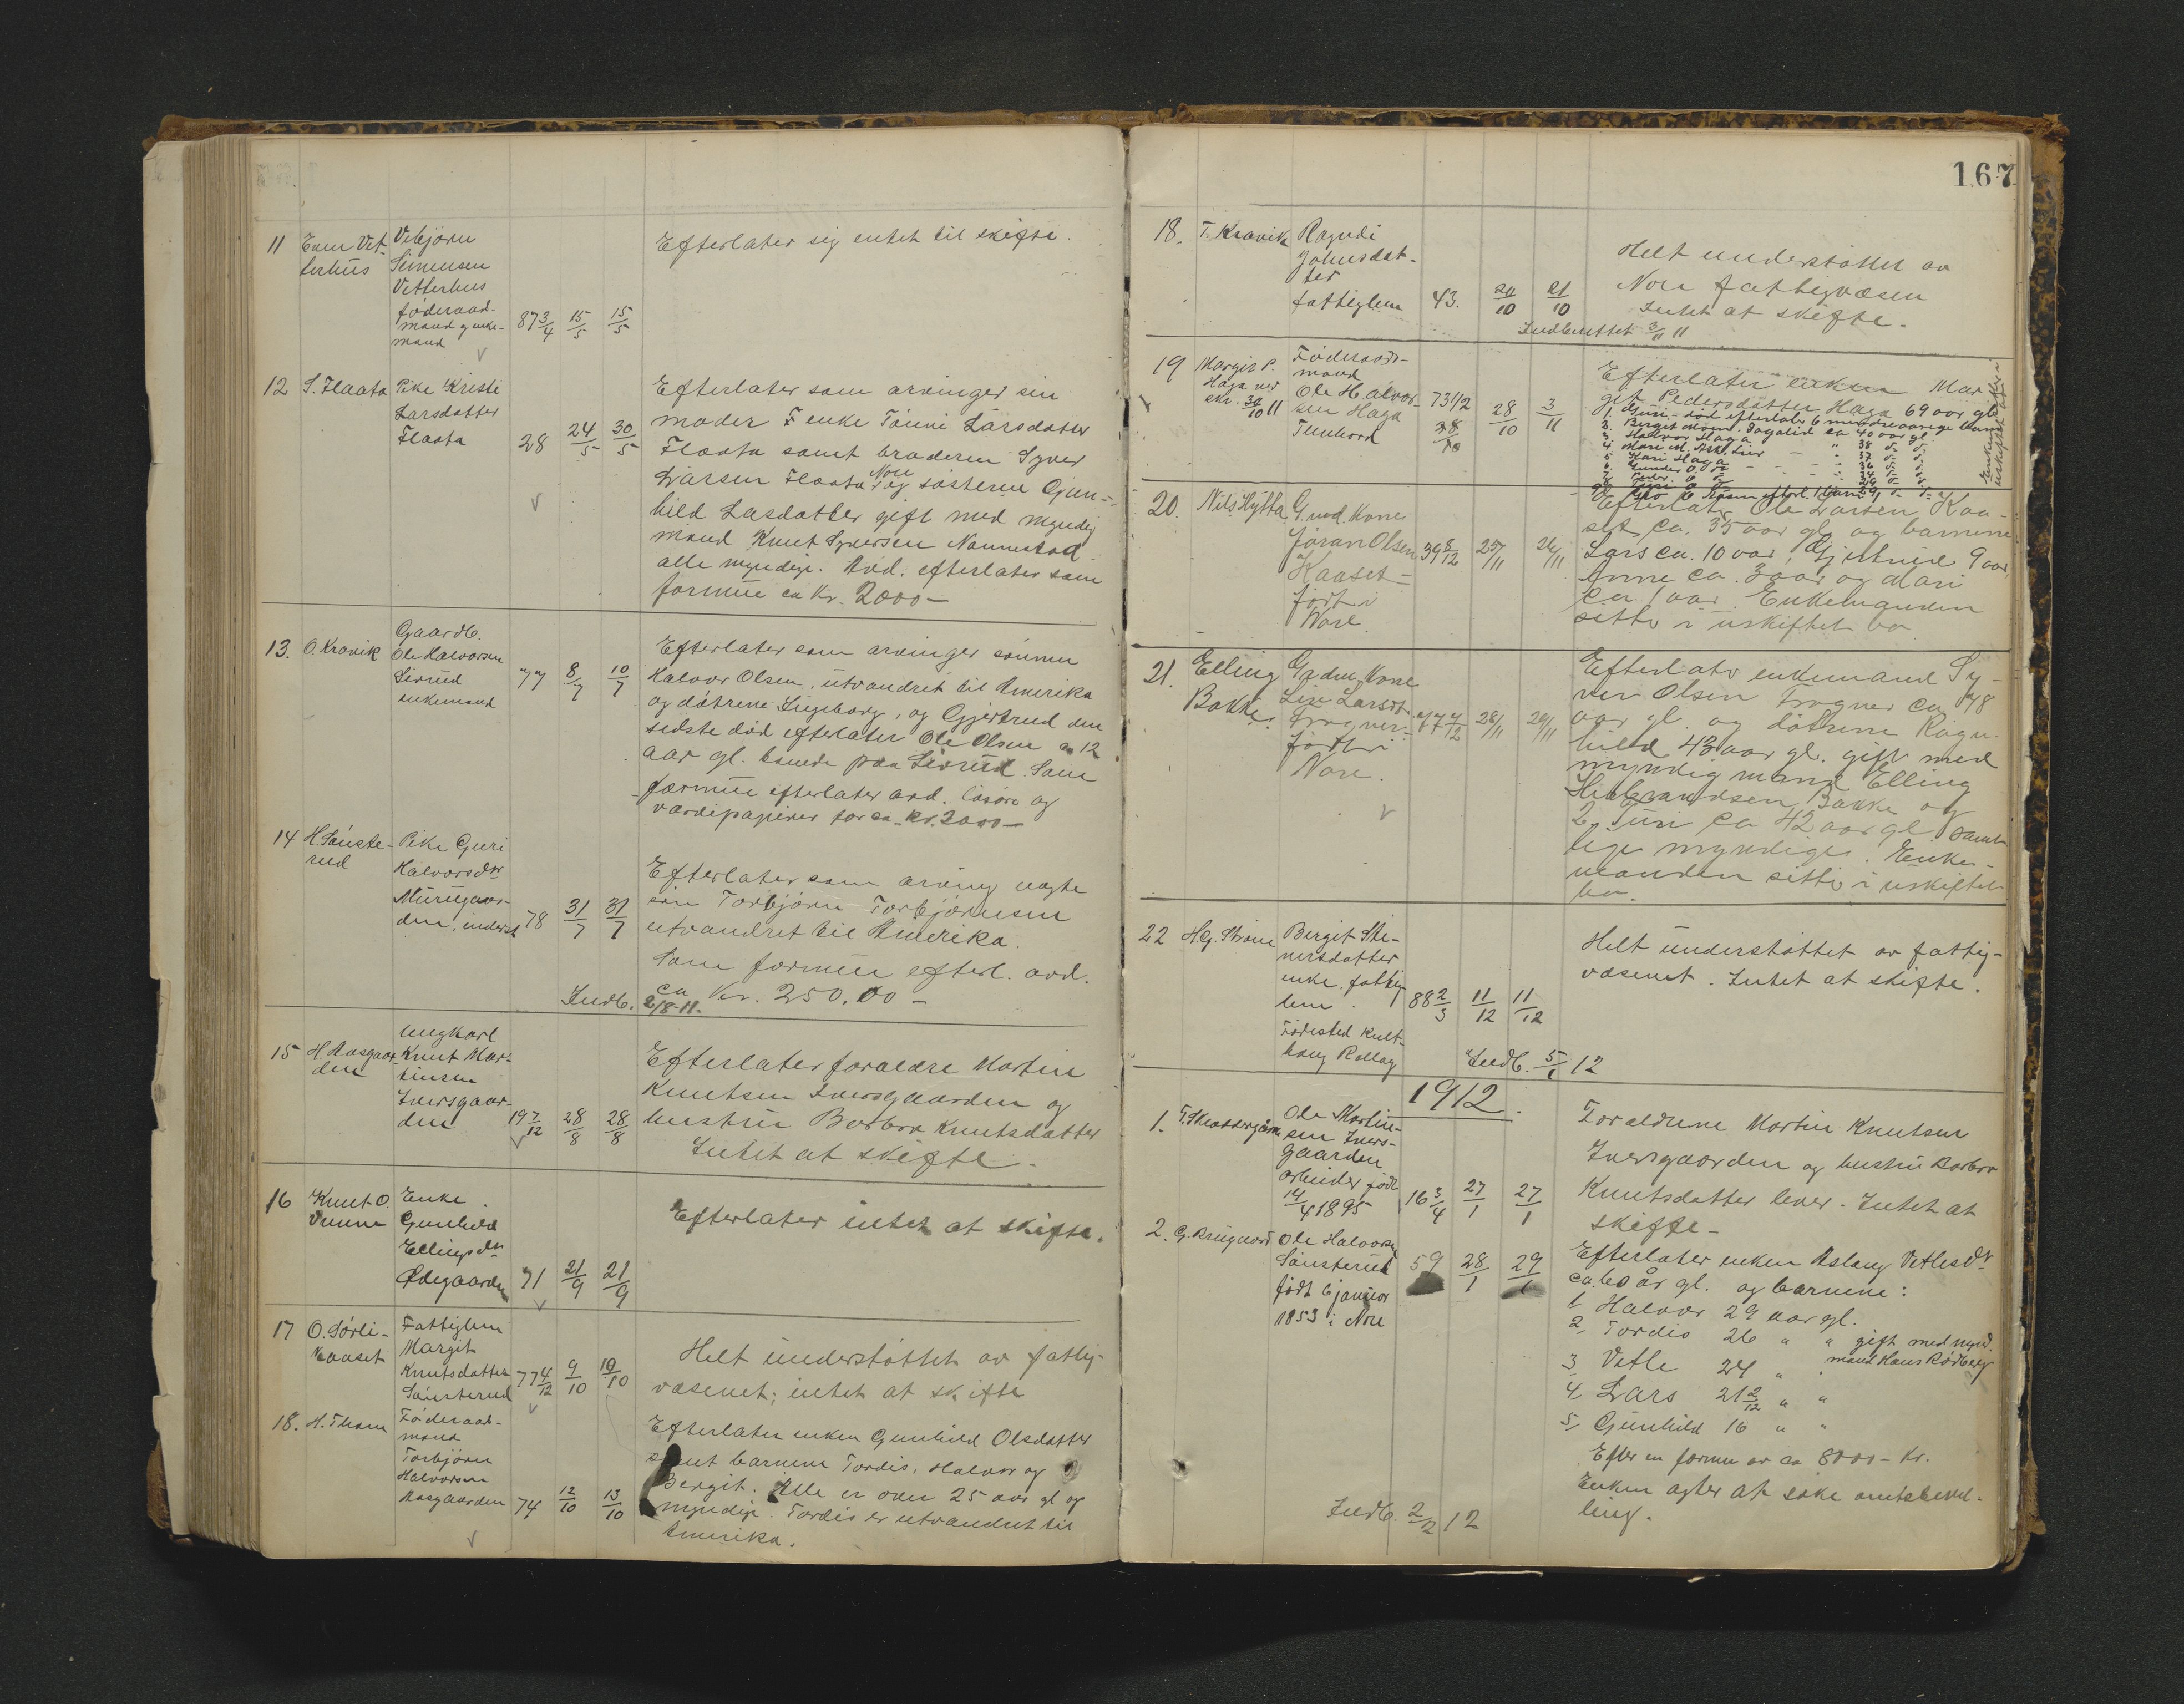 11 Enm Vet-
terhus
Vebjørn
Simensen
Vetterhus
föderaad-
mand og enke-
mand
87 3/4 15/5 15/5
Efterlater sig intet til skifte.
12 S. Flaata
Pike Kristi
Larsdatter
Flaata
28 24/5 30/5
Efterlater som arvinger sin
moder F enke Tönni Larsdatter
Flaata samt broderen Syver
Larsen Flaata Nore og søsteren Gun-
hild Lasdatter gift med myndig
mand Knut Syversen Nannestad
alle myndige. Avd. efterlater som
formue ca Kr. 2000 -
13. O. Kravik
Gaardb.
Ole Halvorsen
Sevrud
enkemand
77 8/7 10/7
Efterlater som arvinger sönnen
Halvor Olsen, utvandret til Amerika
og døtrene Ingeborg, og Gjertrud den
sidste död efterlater Ole Olsen ca 12
aar gl. boende paa Sevrud. Som
formue efterlater avd. løsøre og
værdipapirer for ca. kr. 2000 -
14 H. Sönste-
rud
Pike Guri
Halvorsdtr
Murugaar-
den, inderst
78 31/7 31/7
Efterlater som arving uegte
sön Torbjörn Torbjörnsen
utvandret til Amerika.
Som formue efterl. avd.
ca Kr. 250.00 -
Indb. 2/8-11.
15 H. Aasgaar-
den
Ungkarl
Knut Mar-
tinsen
Iversgaar-
den
19 7/12 28/8 28/8
Efterlater forældre Martin
Knutsen Iversgaarden og
hustru Barbra Knutsdatter
Intet at skifte.
16 Knut O.
Vrenne
Enke
Gunhild
Ellingsdtr
Ødegaarden
71 21/9 21/9
Efterlater intet at skifte.
17 O. Sörli-
Kaaset
Fattiglem
Margit
Knutsdatter
Sönsterud
77 4/12 9/10 10/10
Helt understöttet av fattig-
væsenet; intet at skifte
18. H. Thom
Föderaad-
mand
Torbjörn
Halvorsen
Aasgaarden
74 12/10 13/10
Efterlater enken Gunhild Olsdatter
samt barnene Tordis, Halvor og
Bergit. Alle er over 25 aar gl og
myndige. Tordis er utvandret til
Amerika.
167
18. T. Kravik
Ragndi
Johnsdat-
ter
fattiglem
43. 20/10 21/10
Helt understøttet av
Nore fattigvæsen
Intet at skifte.
Indberettet 3/11 11
19 Margit P.
Haga ner
skr. 30/10 11
Föderaads-
mand
Ole Halvor-
sen Haga
Tunhovd
73 1/2 28/10 3/11
Efterlater enken Mar-
git Pedersdatter Haga 69 aar gl.
20. Nils Hytta
G.md. Kone
Jöran Olsen
Kaaset
født i
Nore
39 8/12 25/11 26/11
Efterlater Ole Larsen Kaa-
set ca. 35 aar gl og barnene
Lars ca. 10 aar, Gjertrud 9 aar,
Anne ca. 3 aar og Mari
ca 1 aar. Enkemanden
sitter i uskiftet bo
21. Elling
Bakke
Grdm. Kone
Live Larsdt.
Trogner
født i
Nore.
77 7/12 26/11 29/11
Efterlater enkemand Sy-
ver Olsen Trogner ca 78
aar gl. og døtrene Ragn-
hild 43 aar gl. gift med
myndig mand Elling
Hildbrandsen Bakke og
2, Guri ca 42 aar gl samt-
lige myndige. Enke-
manden sitter i uskiftet
bo.
22 H.G. Strøm
Bergit Ste-
nersdatter
enke, fattig-
lem.
Födested Kult-
haug Rollag
88 2/3 11/12 11/12
Helt understöttet av fattig-
væsenet. Intet at skifte.
Indb. 5/1 12
1912.
1.
Ole Martin-
sen Ivers-
gaarden
arbeider født
14/4 1895
16 3/4 27/1 27/1
Forældrene Martin Knutsen
Iversgaarden og hustru Barbro
Knutsdatter lever. Intet at
skifte -
2. G. Krugaard
Ole Halvorsen
Sönsterud
født 6 januar
1853 i Nore
59 28/1 29/1
Efterlater enken Aslaug Vetlesdtr
ca. 60 år gl. og barnene:
1, Halvor 29 aar gl.
2, Tordis 26 " " gift med mynd.
mand Hans Rödberg
3 Vetle 24 " "
4, Lars 21 2/12 " "
5, Gunhild 16 " "
Efter en formue av ca 8000 - kr.
Enken agter at søke amtsbevil-
ling.
Indb. 2/2 12